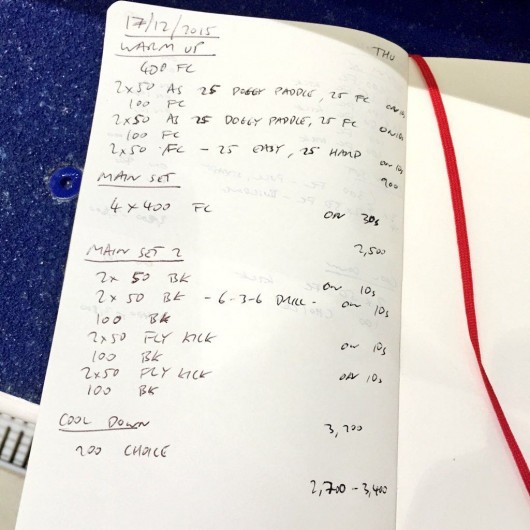 17/12/2015
THU
WARM UP
400 FC
2x50 AS 25 DOGGY PADDLE, 25 FC ON 10s
100 FC
2x50 AS 25 DOGGY PADDLE, 25 FC ON 10s
100 FC
2x50 FC - 25 EASY, 25 HARD ON 10s
900
MAIN SET
4 x 400 FC ON 30s
2,500
MAIN SET 2
2x 50 BK ON 10s
2x 50 BK - 6-3-6 DRILL - ON 10s
100 BK
2x50 FLY KICK ON 10s
100 BK
2x50 FLY KICK ON 10s
100 BK
3,200
COOL DOWN
200 CHOICE
2,700 - 3,400